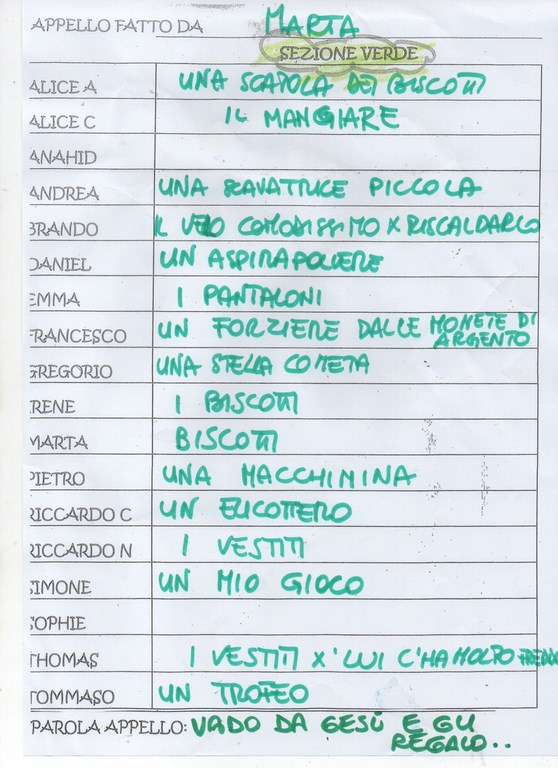 APPELLO FATTO DA MARTA
SEZIONE VERDE
ALICE A UNA SCAPOLA DEI BISCOTTI
ALICE C IL MANGIARE
ANAHID
ANDREA UNA SCAVATRICE PICCOLA
BRANDO IL VELO COMODISSIMO X RISCALDARLO
DANIEL UN ASPIRAPOLVERE
EMMA I PANTALONI
FRANCESCO UN FORZIERE DALLE MONETE DI
ARGENTO
GREGORIO UNA STELLA COMETA
IRENE I BISCOTTI
MARTA BISCOTTI
PIETRO UNA MACCHININA
RICCARDO C UN ELICOTTERO
RICCARDO N I VESTITI
SIMONE UN MIO GIOCO
SOPHIE
THOMAS I VESTITI X' LUI C'HA MOLTO FREDDO
TOMMASO UN TROFEO
PAROLA APPELLO: VADO DA GESÙ E GLI
REGALO..